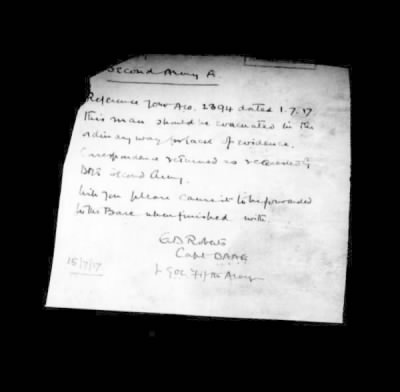 Second Army A.
Reference your A20. 2894 dated 1.7.17
this man should be evacuated in the
ordinary way for lack of evidence.
Correspondence returned as requested by
DMS Second Army.
Will you please cause it to be forwarded
to the Base when finished with.
G.D. Roberts
Capt DAAG
for GOC Fifth Army
15/7/17